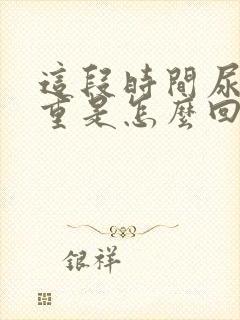 這段時間尿
重是怎麼回
銀祥